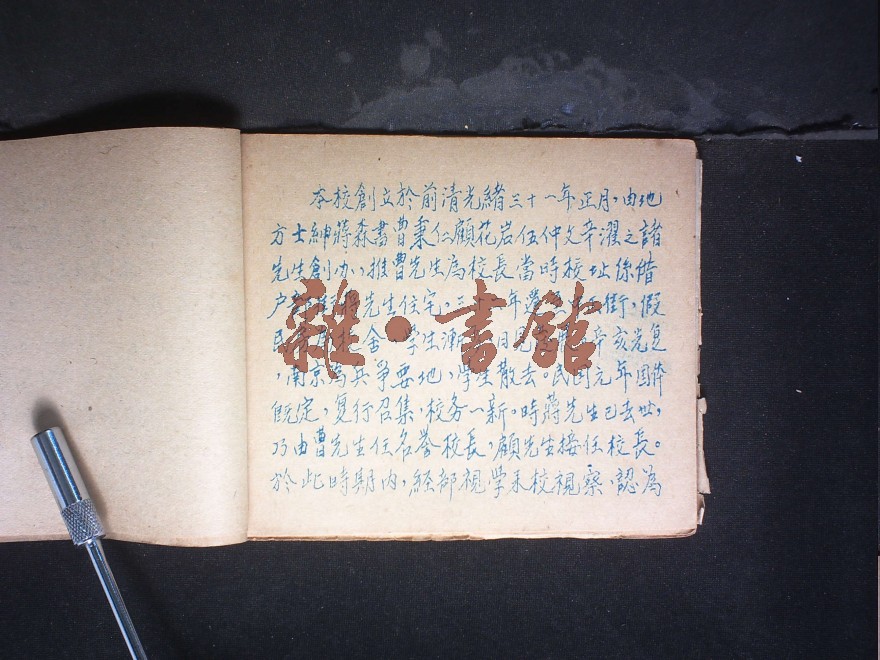 本校創立於前清光緒三十一年正月，由地
方士紳蔣森書曹秉仁顧花岩伍仲文辛濯之諸
先生創办，推曹先生為校長當時校址係借
户部街蔣先生住宅，三十年遷街，假
民房為校舍學生漸日辛亥光复
，南京為兵爭要地，學生散去。民國元年国体
既定，复行召集，校务一新。時蔣先生已去世，
乃由曹先生任名誉校長，顧先生接任校長。
於此時期內，經部視學來校視察，認為
雜·書館